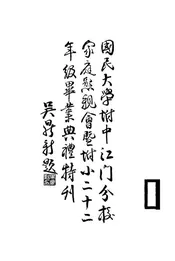 國民大學附中江门分校
家庭懇親會暨附小二十二
年級畢業典禮特刊
吳鼎新題